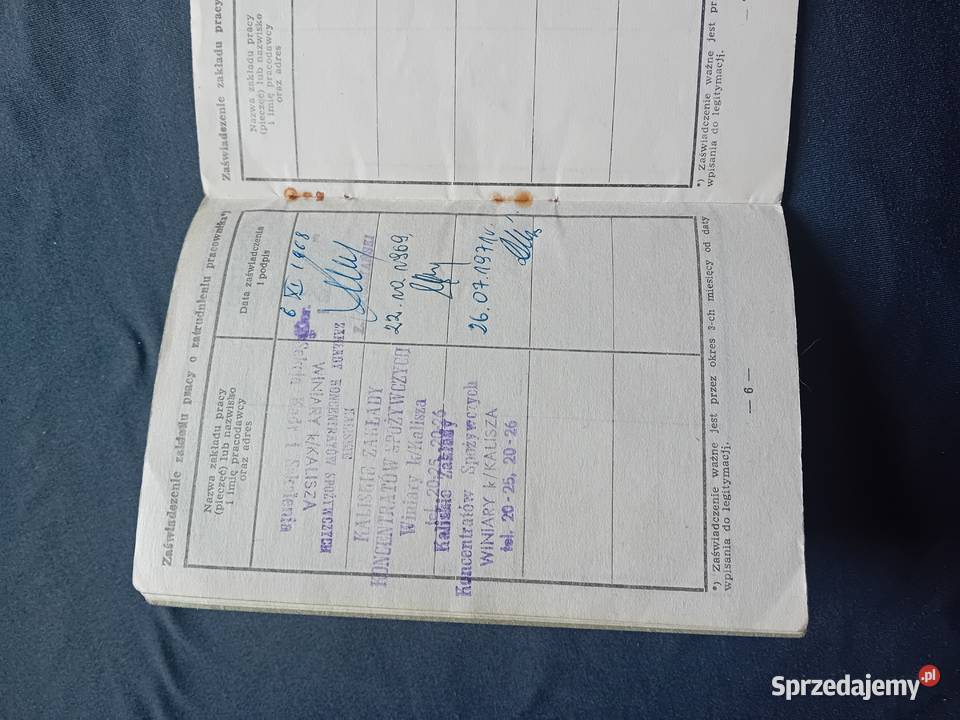 Zaświadczenie zakładu pracy
Nazwa zakładu pracy
(pieczęć) lub nazwisko
i imię pracodawcy
oraz adres
*) Zaświadczenie ważne jest pr
wpisania do legitymacji.
Zaświadczenie zakładu pracy o zatrudnieniu pracownika*)
Nazwa zakładu pracy
(pieczęć) lub nazwisko
i imię pracodawcy
oraz adres
Data zaświadczenia
i podpis
6 XI 1968
KALISKIE
ZAKŁADY KONCENTRATÓW SPOŻYWCZYCH
WINIARY k/KALISZA
KALISKIE ZAKŁADY
KONCENTRATÓW SPOŻYWCZYCH
Winiary k/Kalisza
tel. 20-25, 20-26
22.VII 1969.
Kaliskie Zakłady
Koncentratów Spożywczych
WINIARY k KALISZA
tel. 20-25, 20-26
26.07.1971r.
*) Zaświadczenie ważne jest przez okres 3-ch miesięcy od daty
wpisania do legitymacji.
— 6 —
Sprzedajemy.pl